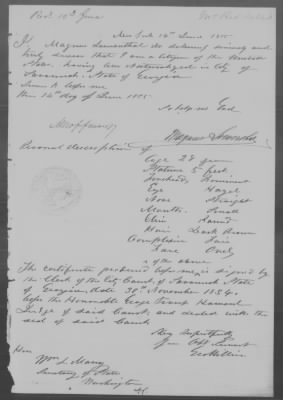 Recd 16th June
New York 14th June 1855.
I Magnus Lowenthal do solemnly sincerely and
truly swear that I am a citizen of the United
States, having been Naturalized in City of
Savannah, State of Georgia
Sworn to before me
this 14th day of June 1855
So help me God
Magnus Lowenthal
Personal description of
Age 28 years
Stature 5 feet
Forehead
Eye Hazel
Nose Straight
Mouth Small
Chin Round
Hair Dark Brown
Complexion Fair
Face Oval
of the above
The certificate produced before me, is signed by
the Clerk of the City Court, of Savannah State
of Georgia, date 30th November 1854.
before the Honorable
Judge of said Court and sealed with the
seal of said Court
Very respectfully
Your Obt Servt
Hon
Wm L. Marcy
Secretary of State
Washington